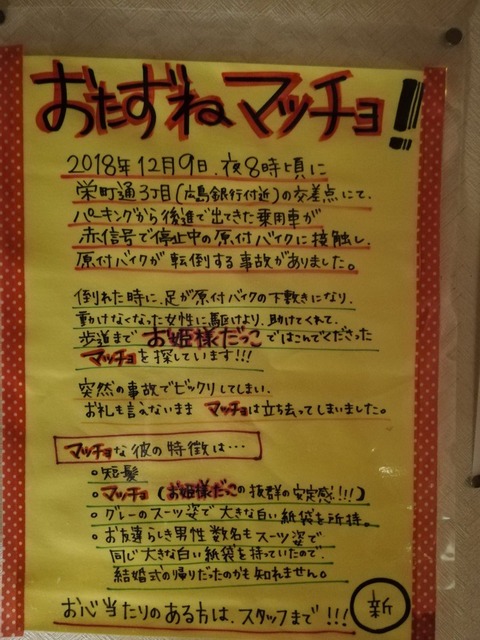 おたずねマッチョ!!
2018年12月9日、夜8時頃に
栄町通3丁目(広島銀行付近)の交差点にて、
パーキングから後進で出てきた乗用車が
赤信号で停止中の原付バイクに接触し、
原付バイクが転倒する事故がありました。
倒れた時に、足が原付バイクの下敷きになり、
動けなくなった女性に駆けより、助けてくれて、
歩道までお姫様だっこではこんでくださった
マッチョを探しています!!!
突然の事故でビックリしてしまい、
お礼も言えないままマッチョは立ち去ってしまいました。
マッチョな彼の特徴は…
○短髪
○マッチョ(お姫様だっこの抜群の安定感!!!)
○グレーのスーツ姿で大きな白い紙袋を所持。
○お友達らしき男性数名もスーツ姿で
同じ大きな白い紙袋を持っていたので、
結婚式の帰りだったのかも知れません。
お心当たりのある方は、スタッフまで!!!